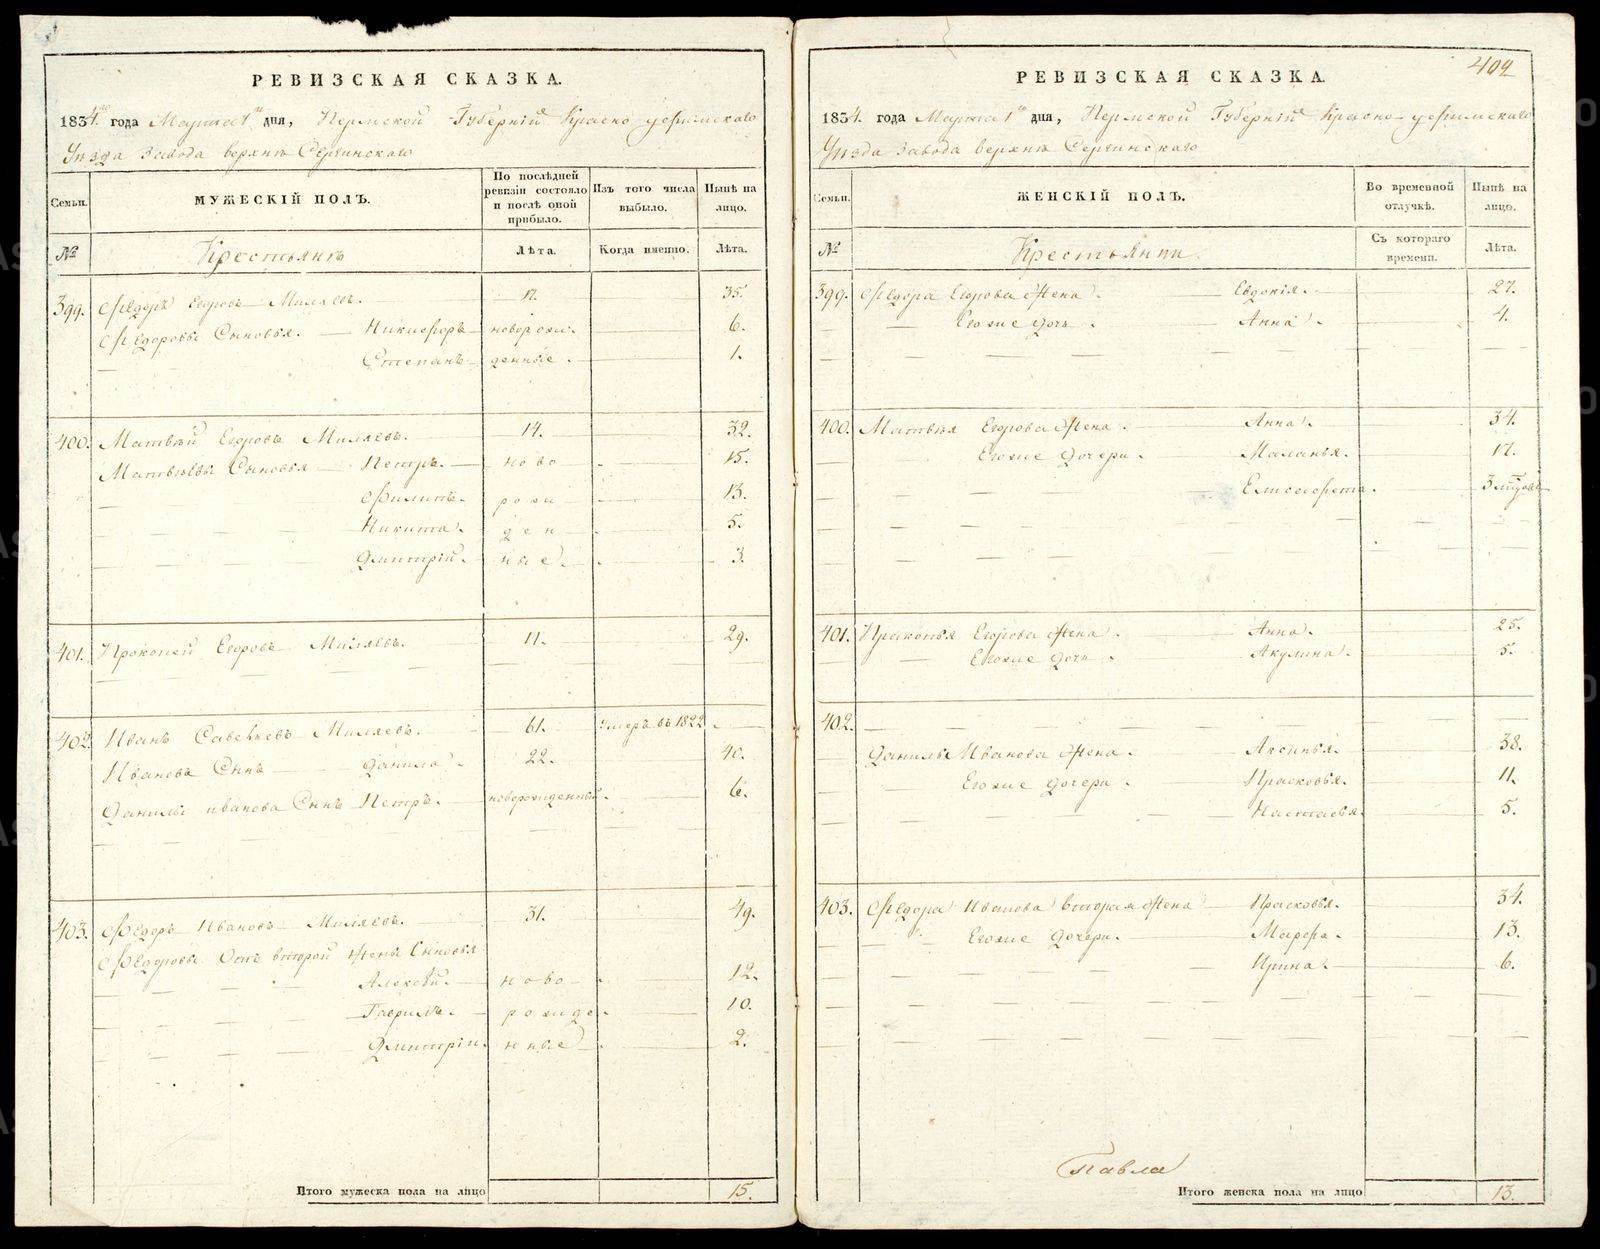 РЕВИЗСКАЯ СКАЗКА.
1834го года Марта 1го дня, Пермской Губернiи Красно уфимскаго
Уѣзда Завода верхнѣ Сергинскаго
Семьи. МУЖЕСКІЙ ПОЛЪ. По послѣдней ревизіи состояло и послѣ оной прибыло. Изъ того числа выбыло. Нынѣ на лицо.
№ Крестьянѣ Лѣта. Когда именно. Лѣта.
399. Ѳедоръ Егоровъ Миляевъ. 17. 35.
Ѳедоровы Сыновья. Никифоръ новорож- 6.
Степанъ денные. 1.
400. Матвѣй Егоровъ Миляевъ. 14. 32.
Матвѣевы Сыновья Петръ. ново 15.
Филипъ. рож 13.
Никита. ден 5.
Дмитрій. ные. 3.
401. Прокопей Егоровъ Миляевъ. 11. 29.
402. Иванъ Савельевъ Миляевъ. 61. умеръ въ 1822.
Ивановъ Сынъ Данила. 22. 40.
Данилы иванова Сынъ Петръ. новорожденный. 6.
403. Ѳедоръ Ивановъ Миляевъ. 31. 49.
Ѳедоровы Отъ второй жены Сыновья
Алексѣй. ново 12.
Гаврилъ. рожде 10.
Дмитрій. нные 2.
Итого мужеска пола на лицо 15.
404
РЕВИЗСКАЯ СКАЗКА.
1834. года Марта 1го дня, Пермской Губернiи Красно-уфимскаго
Уѣзда Завода верхнѣ Сергинскаго
Семьи. ЖЕНСКІЙ ПОЛЪ. Во временной отлучкѣ. Нынѣ на лицо.
№ Крестьянки. Съ котораго времени. Лѣта.
399. Ѳедора Егорова жена. Евдокія. 27.
Егоже дочь. Анна. 4.
400. Матвѣя Егорова жена. Анна. 34.
Егоже дочери. Маланья. 17.
Елисафета. 3
401. Пракопья Егорова жена. Анна. 25.
Егоже дочь. Акулина. 5.
402.
Данилы Иванова жена. Аксинья. 38.
Егоже дочери. Прасковья. 11.
Настасья. 5.
403. Ѳедора Иванова вторая жена Прасковья. 34.
Егоже дочери. Марфа. 13.
Ирина. 6.
Павла
Итого женска пола на лицо 13.